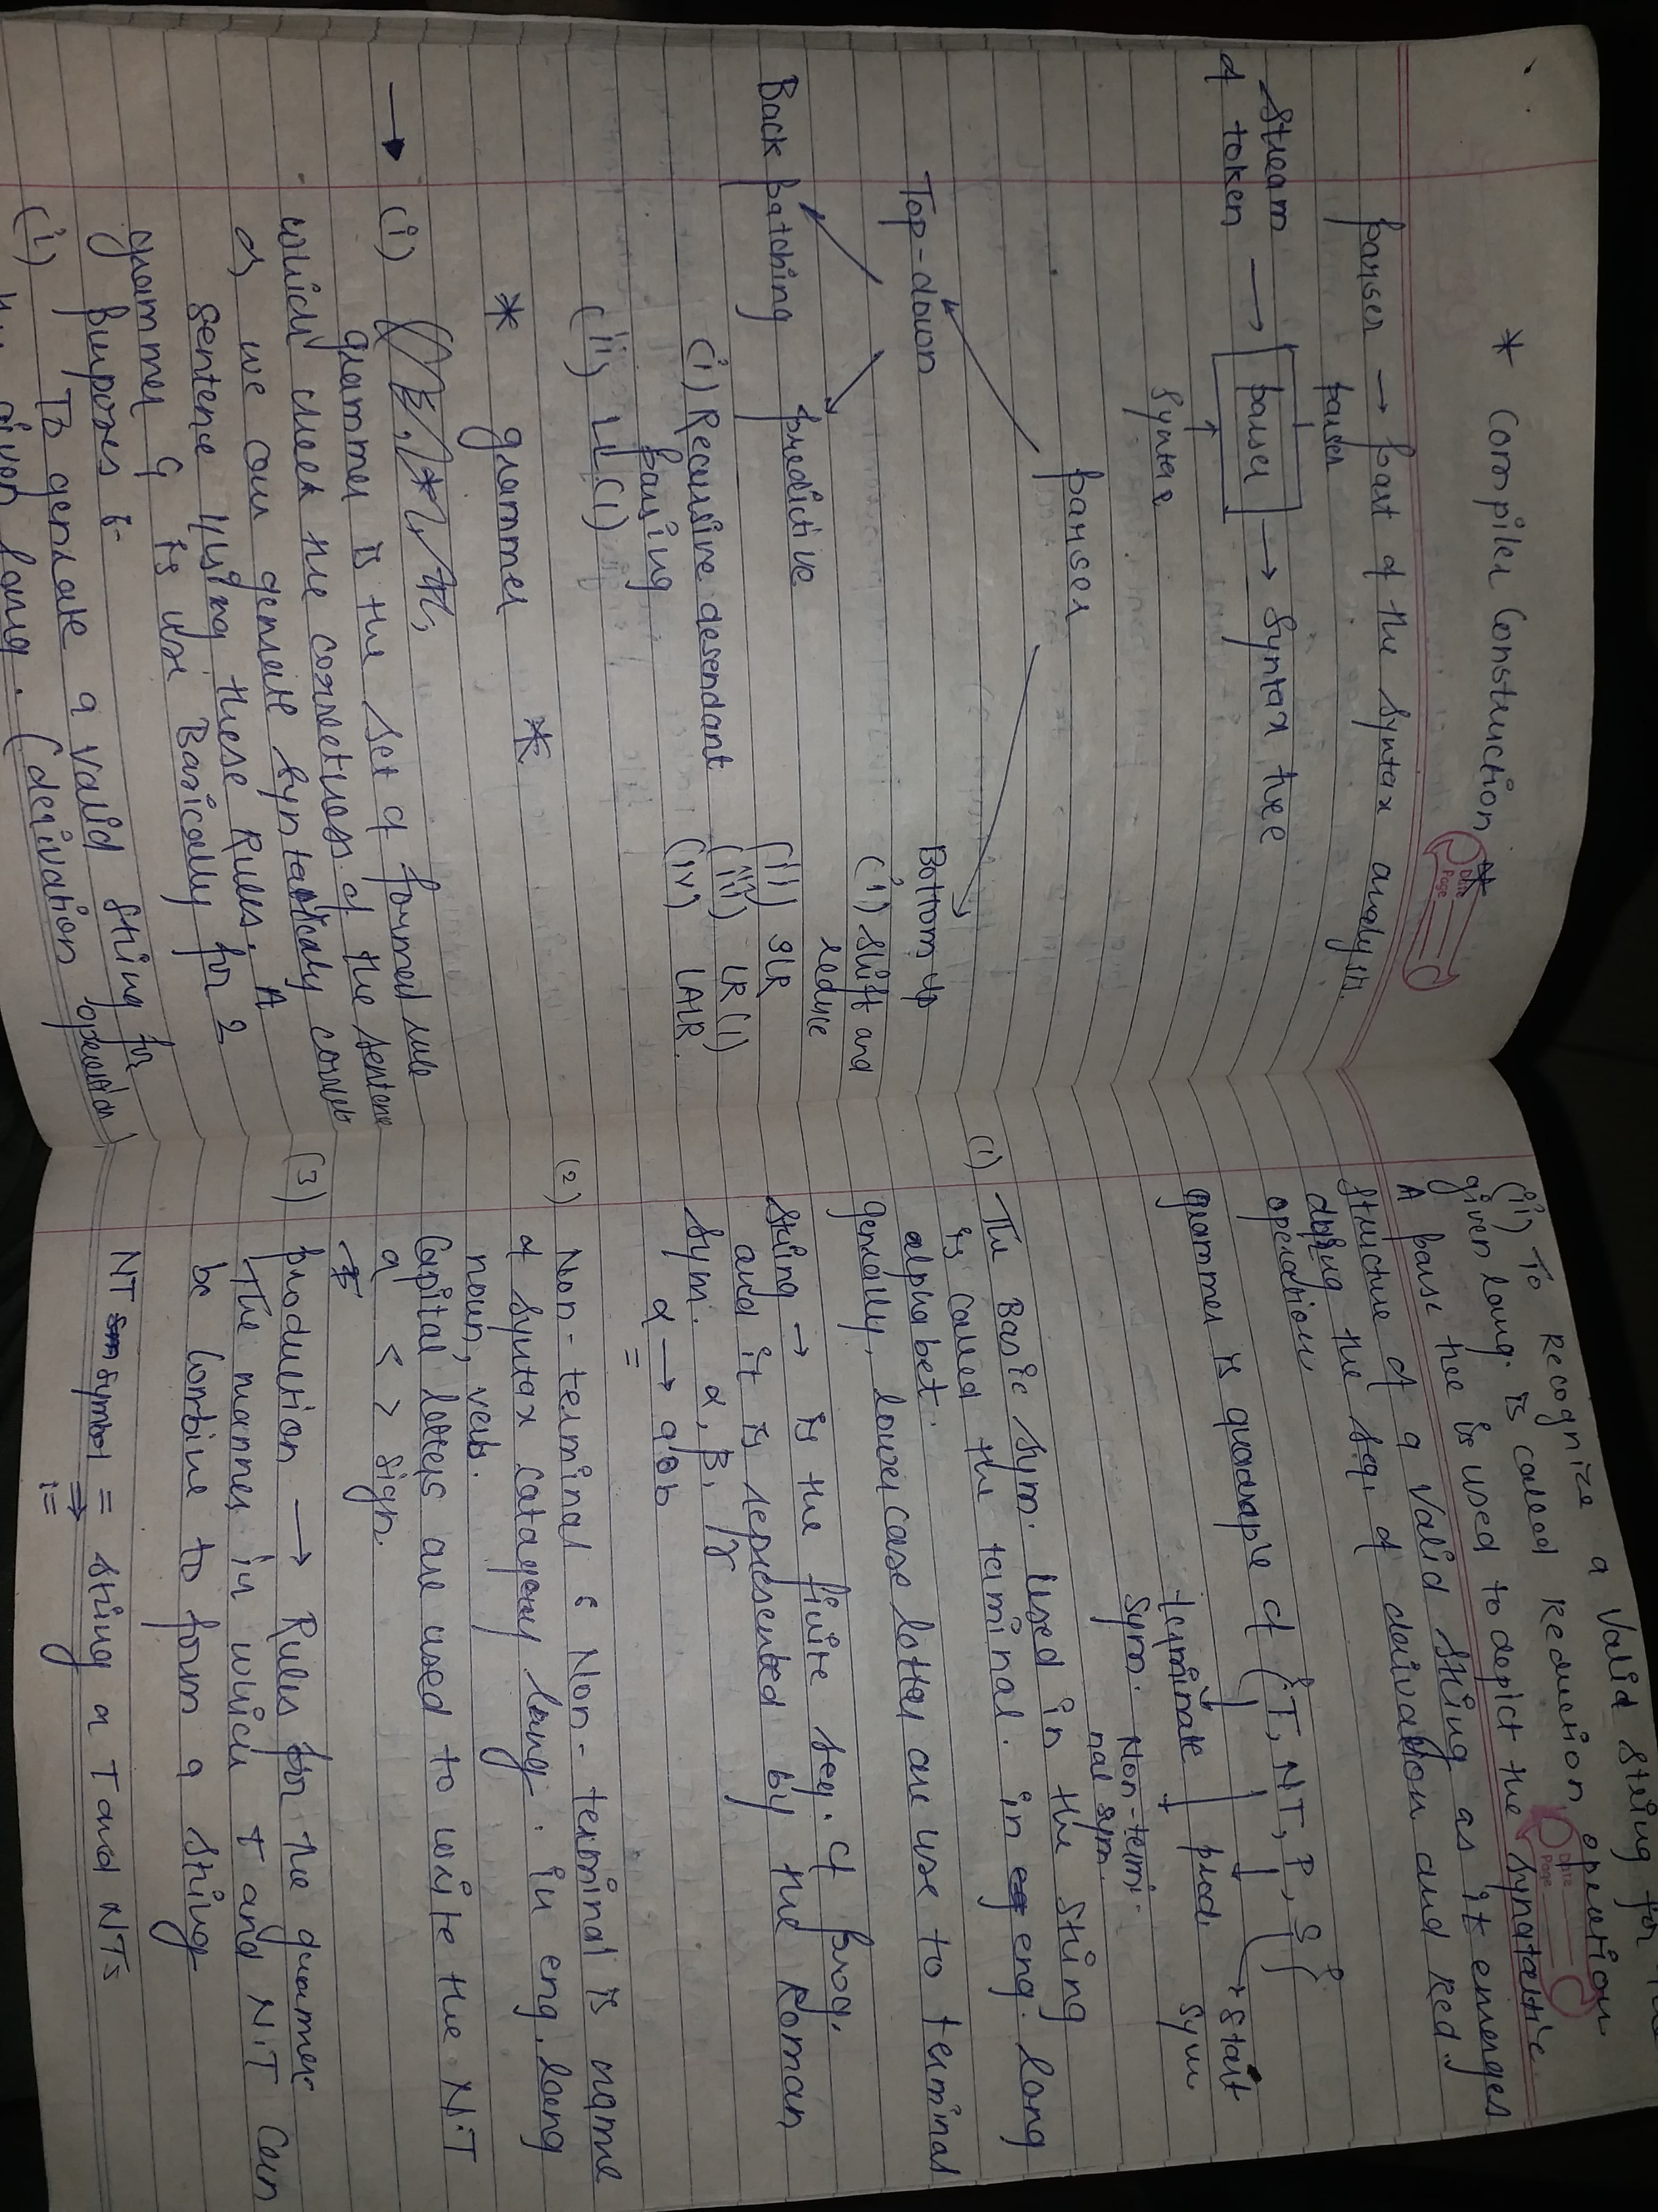 * Compiler Construction *
Date
Page
parser → part of the syntax analysis.
parser
stream of token → parser → syntax tree
syntax
parser
Top-down
Bottom up
Back patching
predictive
(i) shift and
reduce
(ii) SLR
(iii) LR(1)
(iv) LALR.
(i) Recursive desendant
parsing
(ii) LL(1)
* grammer *
→ (i)
grammer is the set of formed rule
which check the correctness of the sentence
we can genrate syntactically correct
sentence using these Rules. A
grammer G is use Basically for 2
purposes :-
(i) To genrate a valid string for
given lang. (derivation operation)
(ii) To Recognize a valid string for the
given lang. is called Reduction opration
Date
Page
A parse tree is used to depict the synatactic
structure of a valid string as it emerges
during the seq. of derivation and Red.
operation
grammer is quadraple of {T, NT, P, S}
terminate
sym.
Non-termi-
nal sym.
prod.
start
sym
(1) The Basic sym. used in the string
is called the terminal. in eng. lang
alphabet.
genrally, lower case letter are use to terminal
string → is the finite seq. of prog.
and it is represented by the Roman
sym. α, β, γ
α → aBb
=
(2) Non-terminal : Non-terminal is name
of syntax catagory lang. in eng. lang
noun, verb.
Capital letters are used to write the N.T
a < > sign.
(3) production → Rules for the grammer
The manner in which T and N.T can
be combine to form a string
NT symbol = string a T and NTs
⇒
:=